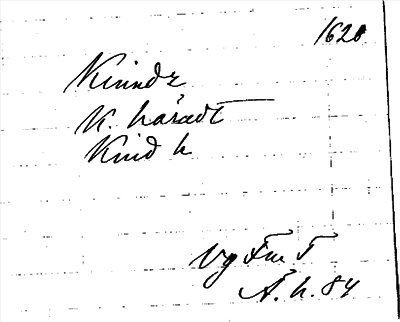 1620
Kinndz
K. häradt
Kind h
Vg Fm T
Ä. h. 84